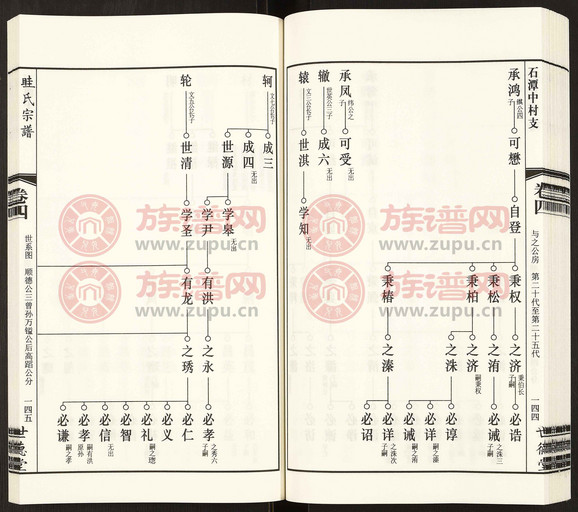 石潭中村支
卷四
与之公房 第二十代至第二十五代
一四四
世德堂
承鸿
子
可懋
自登
秉权
秉松
秉柏
秉椿
之济
秉伯长子嗣
之洧
之济
嗣秉权
之洙
之溱
必诰
必诚
之洙三子嗣
必谆
必详
嗣之溱
必诚
嗣之洧
必详
之洙次子嗣
必诏
承凤
纬公之子
可受
无出
辙
世英公三子
成六
无出
辕
文三公长子
世淇
学知
无出
轲
文七公长子
成三
成四
无出
世源
学皋
无出
学尹
有洪
之永
必孝
之秀六子嗣
轮
文五公长子
世清
学圣
有龙
之琇
必仁
必义
必礼
嗣之璁
必智
必信
无出
必孝
嗣有洪原孙
必谦
嗣之孝
眭氏宗谱
卷四
世系图 顺德公三曾孙万镒公后高踏公分
一四五
世德堂
族谱网
www.zupu.cn
族谱网
www.zupu.cn